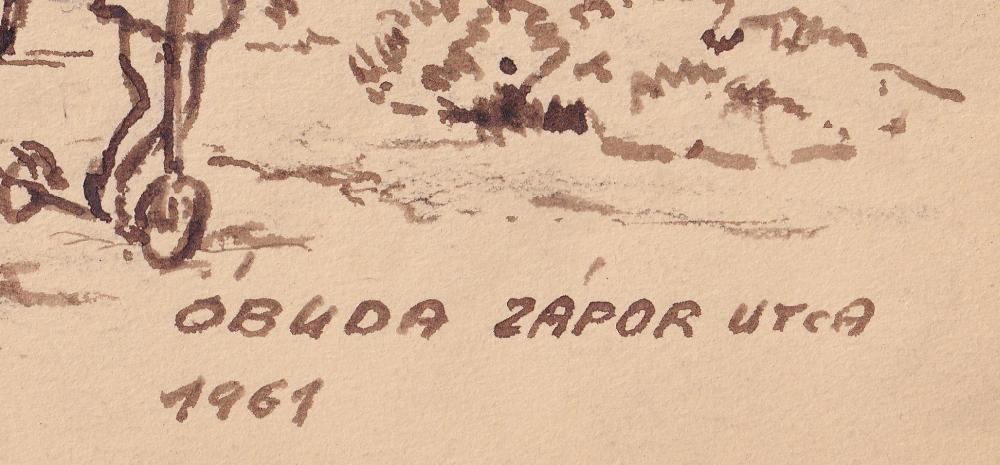 ÓBUDA ZÁPOR UTCA
1961